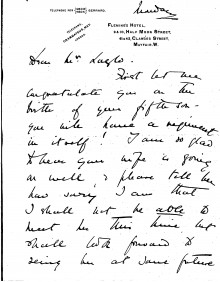 Sunday
TELEPHONE NOS. GERRARD.
FLEMINGS HOTEL,
HALF MOON STREET,
CLARGES STREET,
MAYFAIR, W.
Dear Mr Laszlo.
First let me
congratulate you on the
birth of your fifth son -
you will have a regiment
in itself! I am so glad
to hear your wife is going
on well, & please tell her
how sorry I am that
I shall not be able to
meet her this time but
shall look forward to
seeing her at some future